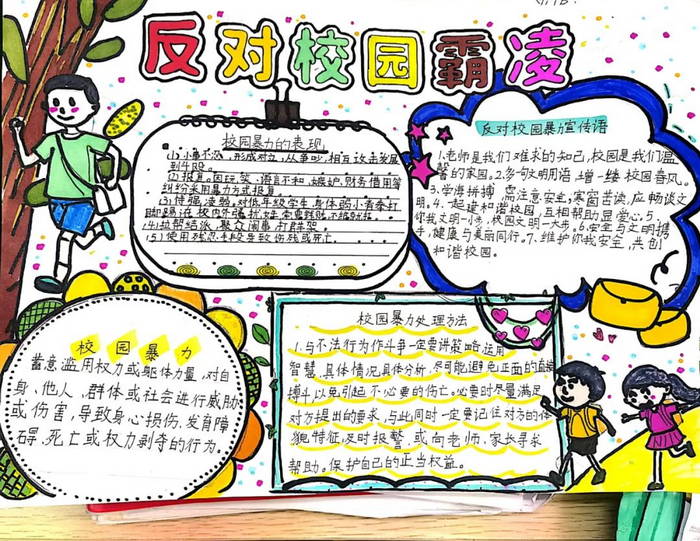 反对校园霸凌
校园暴力的表现
(1)小事不忍,形成对立,从争吵,相互攻击发展
到斗殴。
(2)报复。因玩笑、语言不和、嫉妒、财务借用等
纠纷采用暴力方式报复。
(3)恃强凌弱。对低年级学生,身体弱小者拳打
脚踢,在校内外骚扰
(4)拉帮结派,聚众闹事,打群架。
(5)使用残忍手段导致伤残或死亡。
反对校园暴力宣传语
1.老师是我们难求的知己,校园是我们温
馨的家园。2.多句文明用语,增一缕校园春风。
3.学海拼搏需注意安全,寒窗苦读,应畅谈文
明。4.一起建和谐校园,互相帮助显爱心。5.
你我文明一小步,校园文明一大步。6.安全与文明携
手,健康与美丽同行。7.维护你我安全,共创
和谐校园。
校园暴力
蓄意滥用权力或躯体力量,对自
身、他人、群体或社会进行威胁
或伤害,导致身心损伤、发育障
碍、死亡或权力剥夺的行为。
校园暴力处理方法
1.与不法行为作斗争一定要讲策略,运用
智慧,具体情况具体分析,尽可能避免正面的直接
搏斗以免引起不必要的伤亡。必要时尽量满足
对方提出的要求,与此同时一定要记住对方的体
貌特征,及时报警,或向老师、家长寻求
帮助。保护自己的正当权益。